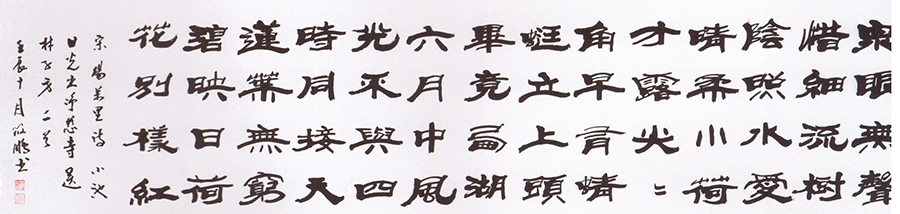 泉眼無聲
惜細流樹
陰照水愛
晴柔小荷
才露尖〻
角早有蜻
蜓立上頭
畢竟西湖
六月中風
光不與四
時同接天
蓮葉無窮
碧映日荷
花別樣紅
宋楊萬里詩 小池
曉出淨慈寺送
林子方二首
壬辰十月